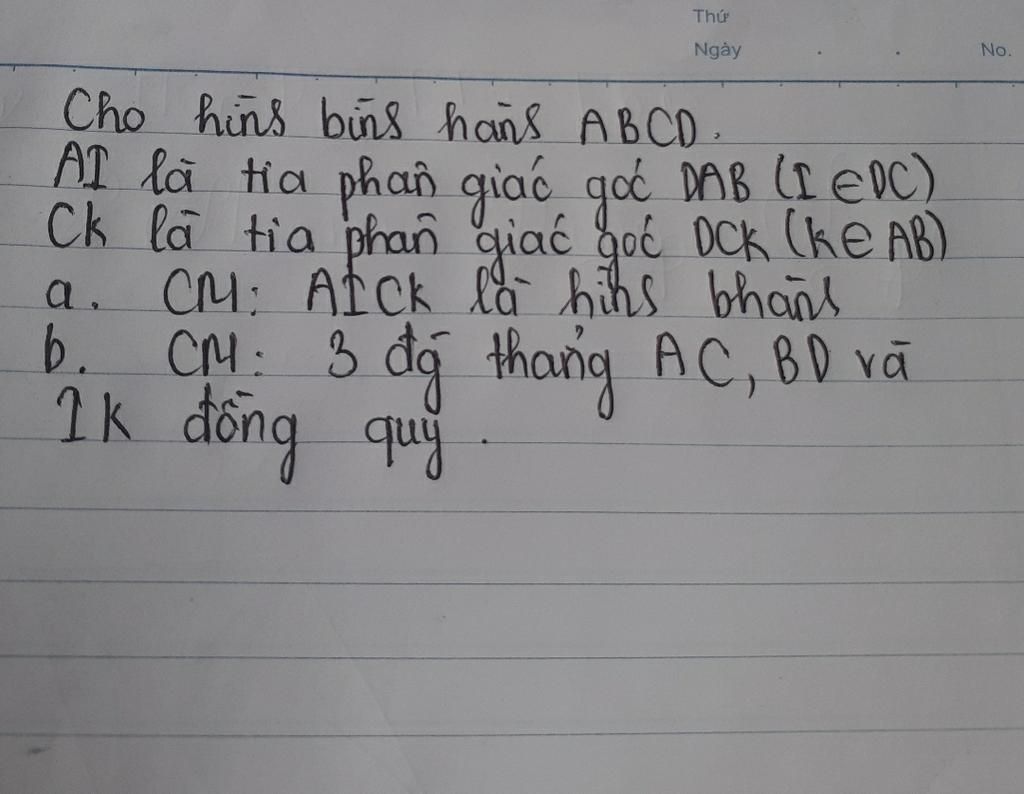 Thứ
Ngày . . No.
Cho hình bình hành ABCD.
AI là tia phân giác góc DAB (I ∈ DC)
CK là tia phân giác góc DCK (K ∈ AB)
a. CM: AICK là hình bhành
b. CM: 3 đg thẳng AC, BD và
IK đồng quy.